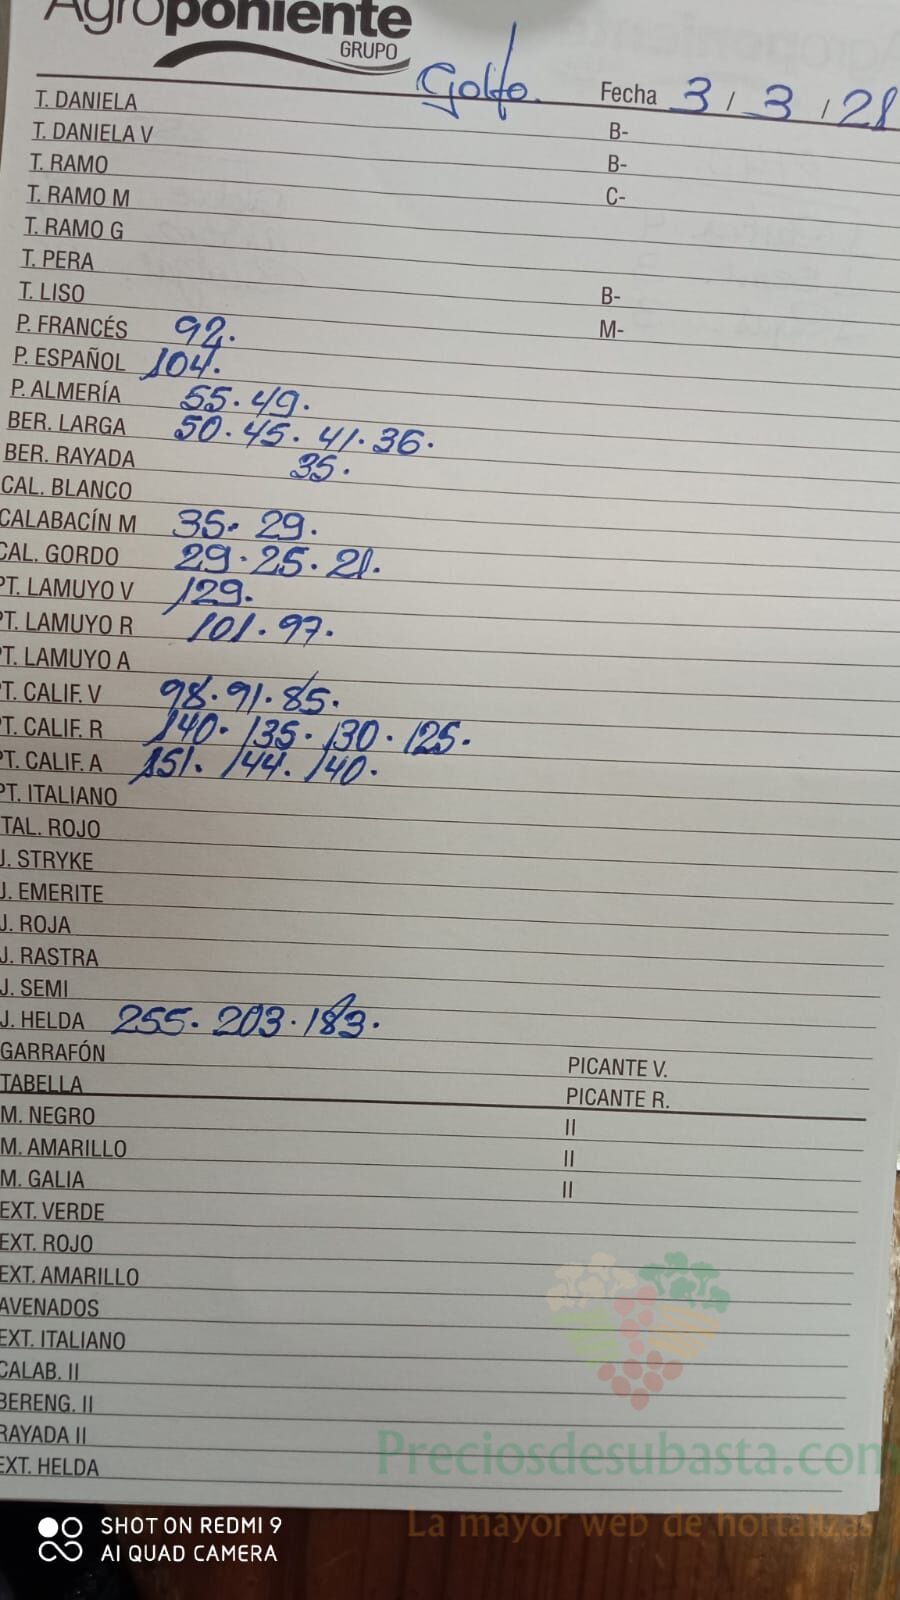 Agroponiente
GRUPO
Golfo. Fecha 3 / 3 / 21
T. DANIELA
T. DANIELA V B-
T. RAMO B-
T. RAMO M C-
T. RAMO G
T. PERA
T. LISO B-
P. FRANCÉS 92. M-
P. ESPAÑOL 104.
P. ALMERÍA 55. 49.
BER. LARGA 50. 45. 41. 36.
BER. RAYADA 35.
CAL. BLANCO
CALABACÍN M 35. 29.
CAL. GORDO 29. 25. 21.
PT. LAMUYO V 129.
PT. LAMUYO R 101. 97.
PT. LAMUYO A
PT. CALIF. V 98. 91. 85.
PT. CALIF. R 140. 135. 130. 125.
PT. CALIF. A 151. 144. 140.
PT. ITALIANO
TAL. ROJO
J. STRYKE
J. EMERITE
J. ROJA
J. RASTRA
J. SEMI
J. HELDA 255. 203. 183.
GARRAFÓN PICANTE V.
TABELLA PICANTE R.
M. NEGRO II
M. AMARILLO II
M. GALIA II
EXT. VERDE
EXT. ROJO
EXT. AMARILLO
AVENADOS
EXT. ITALIANO
CALAB. II
BERENG. II
RAYADA II
EXT. HELDA
Preciosdesubasta.com
La mayor web de hortalizas
SHOT ON REDMI 9
AI QUAD CAMERA